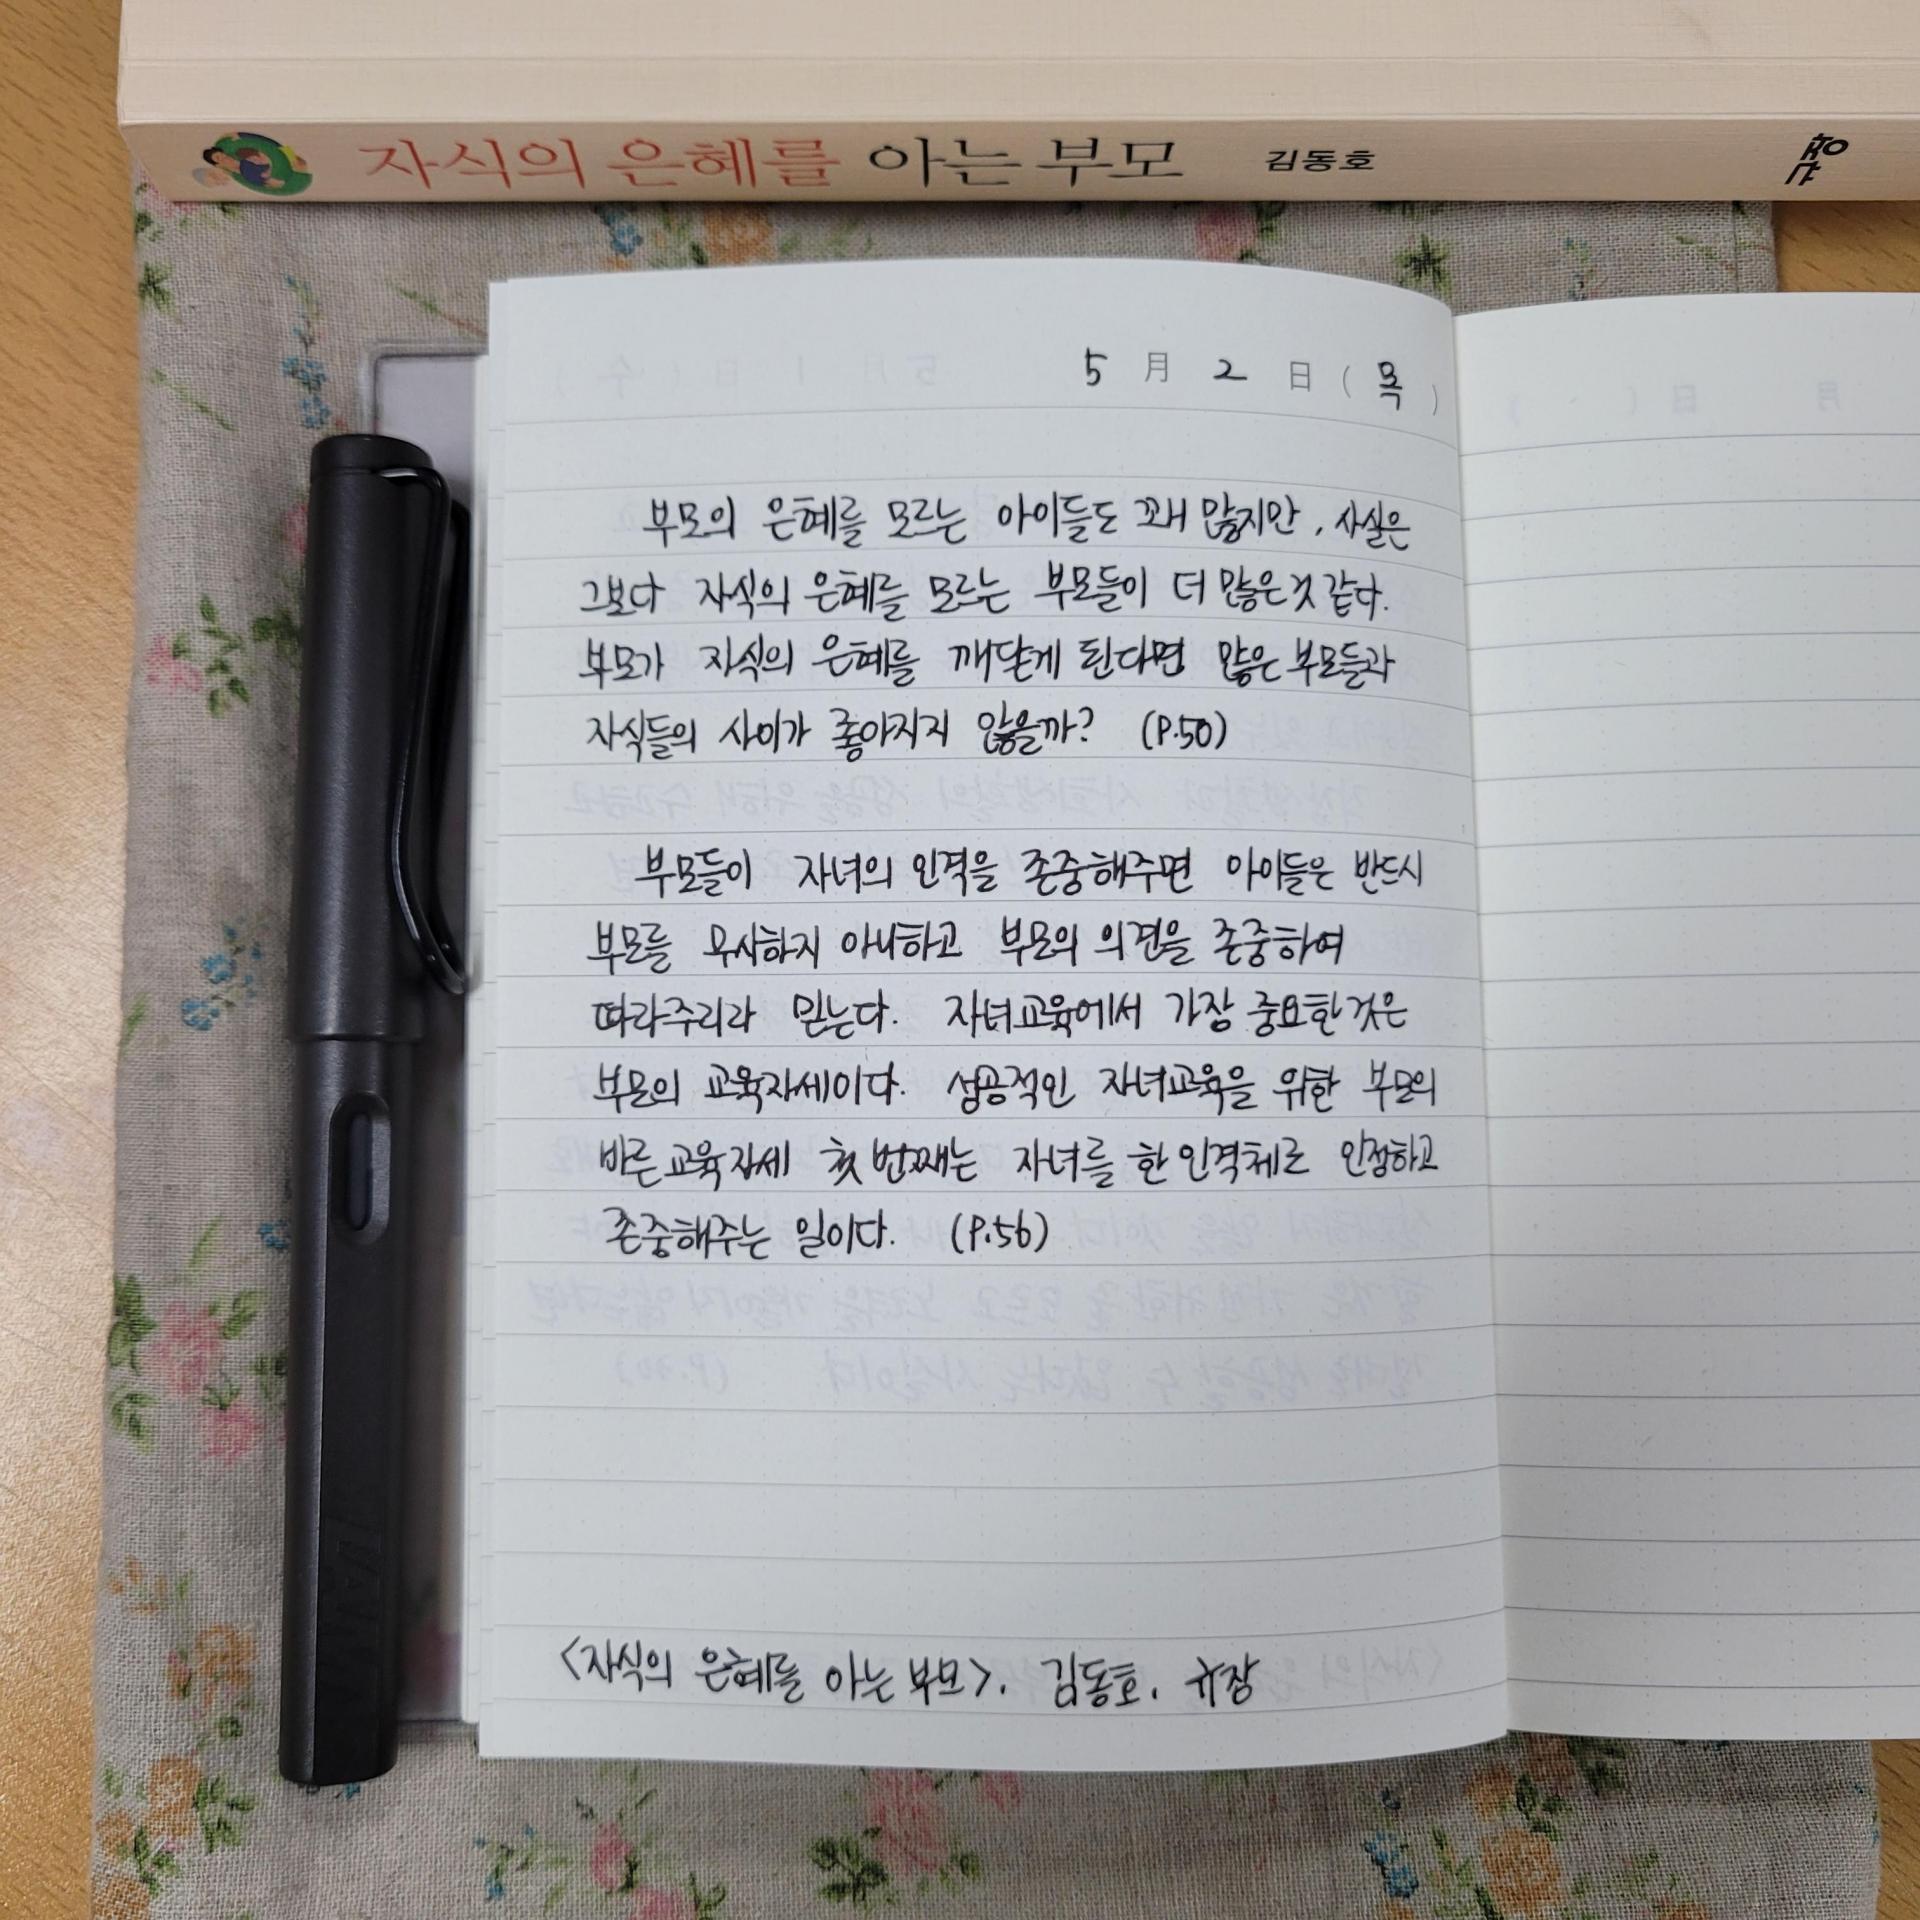 자식의 은혜를 아는 부모 김동호
5 月 2 日 (목)
부모의 은혜를 모르는 아이들도 꽤 많지만, 사실은
그보다 자식의 은혜를 모르는 부모들이 더 많은것 같다.
부모가 자식의 은혜를 깨닫게 된다면 많은 부모들과
자식들의 사이가 좋아지지 않을까? (P.50)
부모들이 자녀의 인격을 존중해주면 아이들은 반드시
부모를 무시하지 아니하고 부모의 의견을 존중하여
따라주리라 믿는다. 자녀교육에서 가장 중요한것은
부모의 교육자세이다. 성공적인 자녀교육을 위한 부모의
바른 교육자세 첫 번째는 자녀를 한 인격체로 인정하고
존중해주는 일이다. (P.56)
<자식의 은혜를 아는 부모>. 김동호. 규장
LAMY